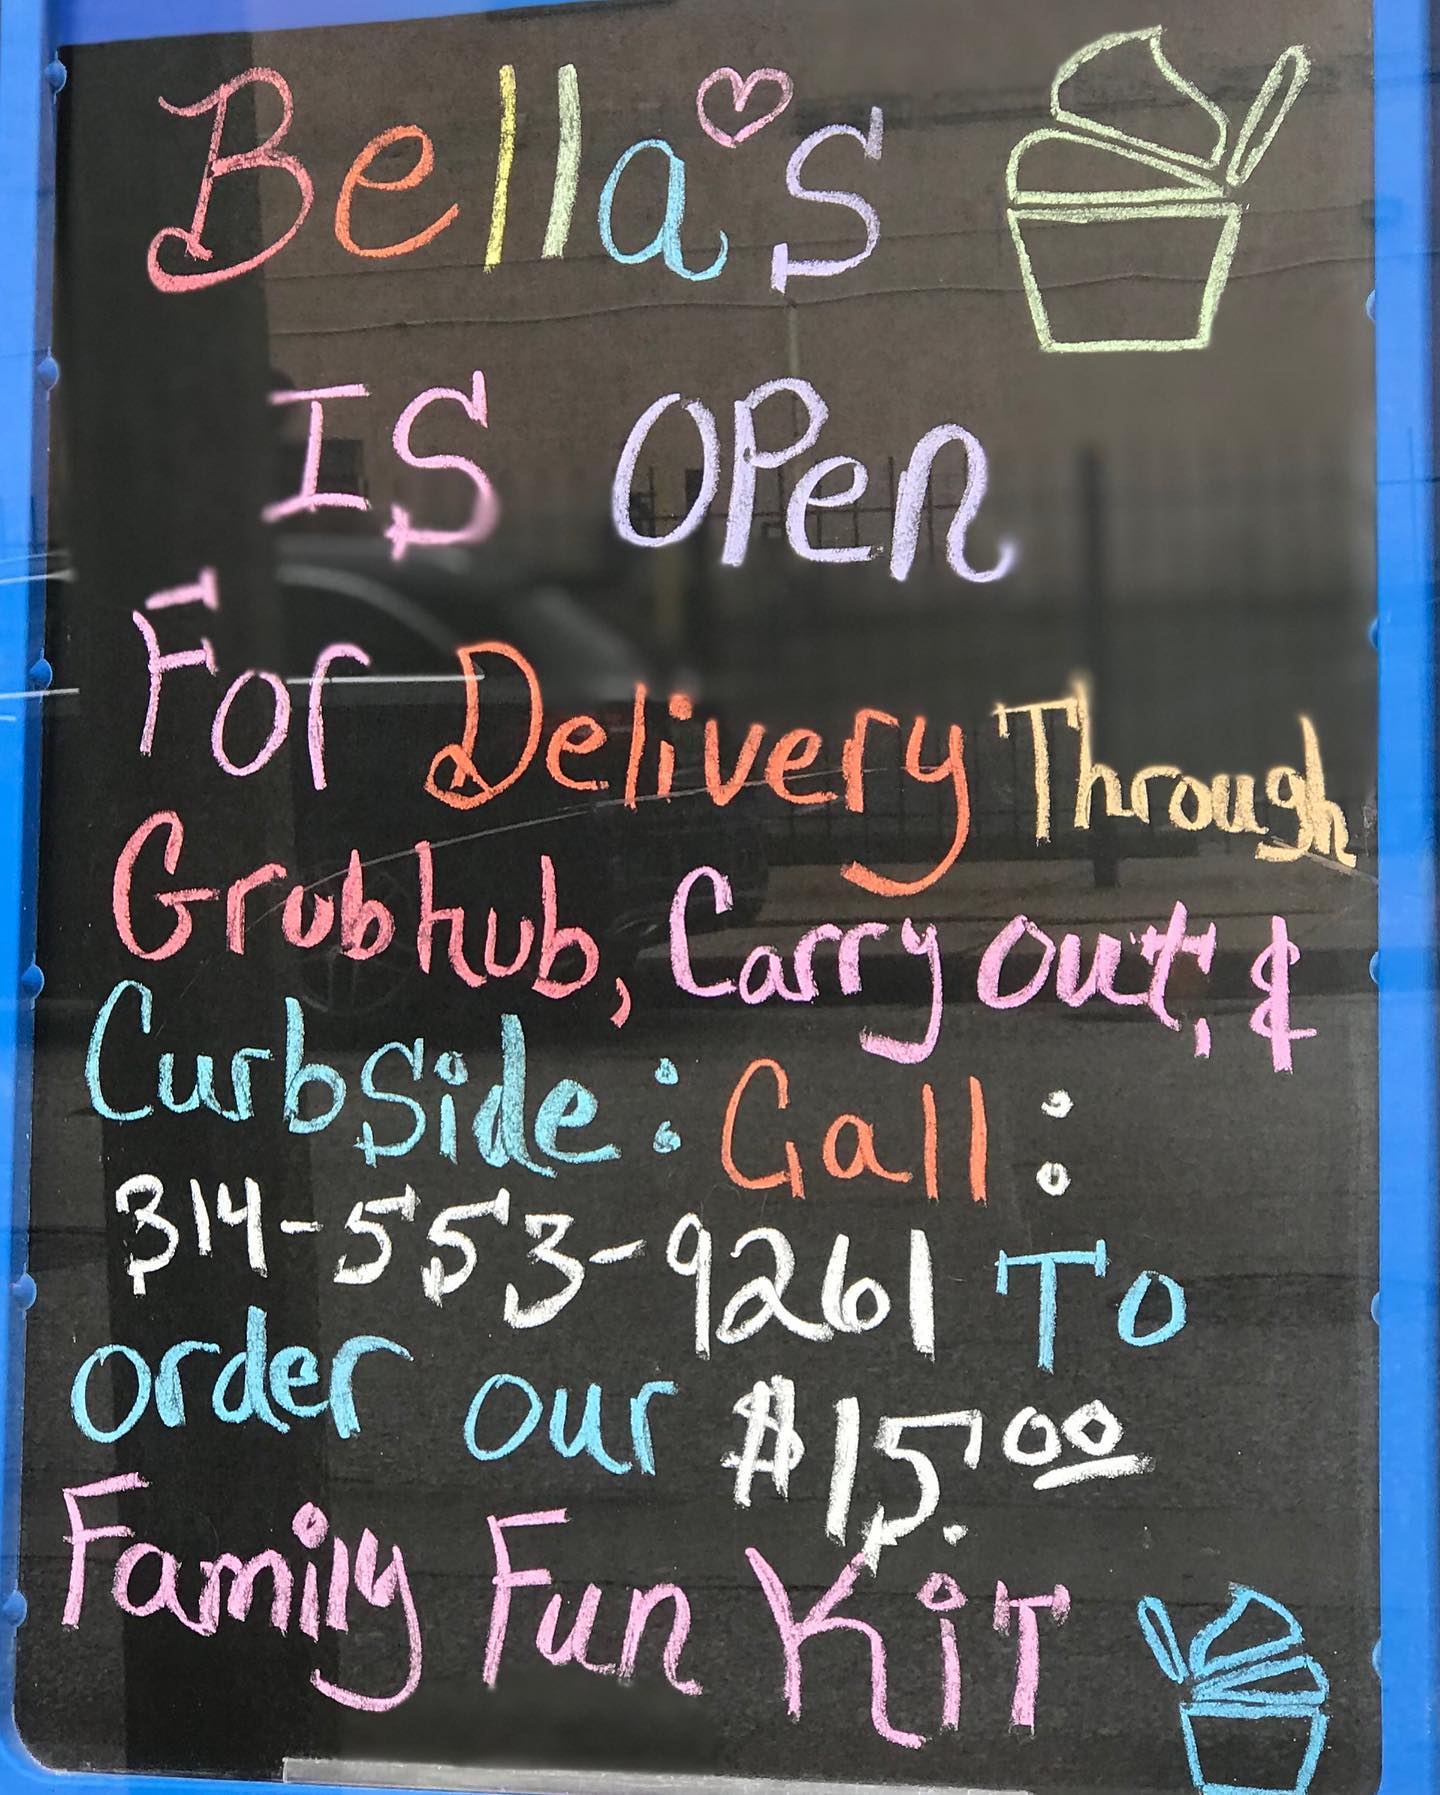 Bella's
IS OPen
For Delivery Through
Grubhub, Carry out, &
CurbSide: Call:
314-553-9261 To
order our $15.00
Family Fun KiT